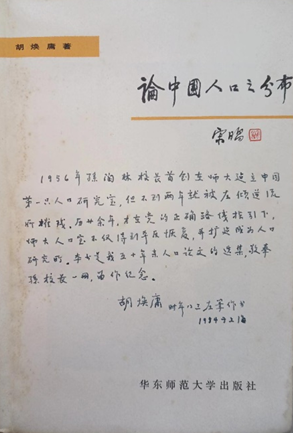 胡焕庸著
論中国人口之分布
1956年孙泊林校长首创在师大建立中国
第一个人口研究室,但不到两年就被左倾逆流
所摧残。历廿余年,才在党的正确路线指引下,
师大人口室不仅得到平反恢复,并扩建成为人口
研究所。本文是我五十年来人口论文的选集,敬奉
孙校长一册,留作纪念。
胡焕庸 时年八三左笔作书
1984.4.上海
华东师范大学出版社